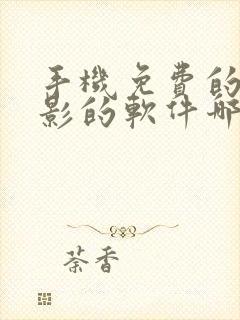 手機免費的
影的軟件哪
茶香